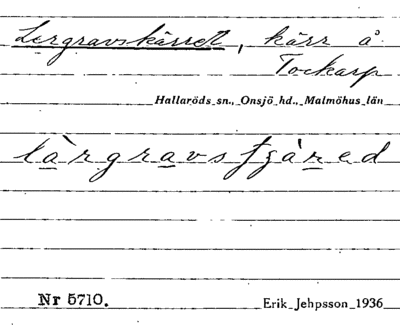 Lergravskärret, kärr å
Tockarp
Hallaröds sn., Onsjö hd., Malmöhus län
làrgravsʃʒàred
Nr 5710.
Erik Jehpsson 1936